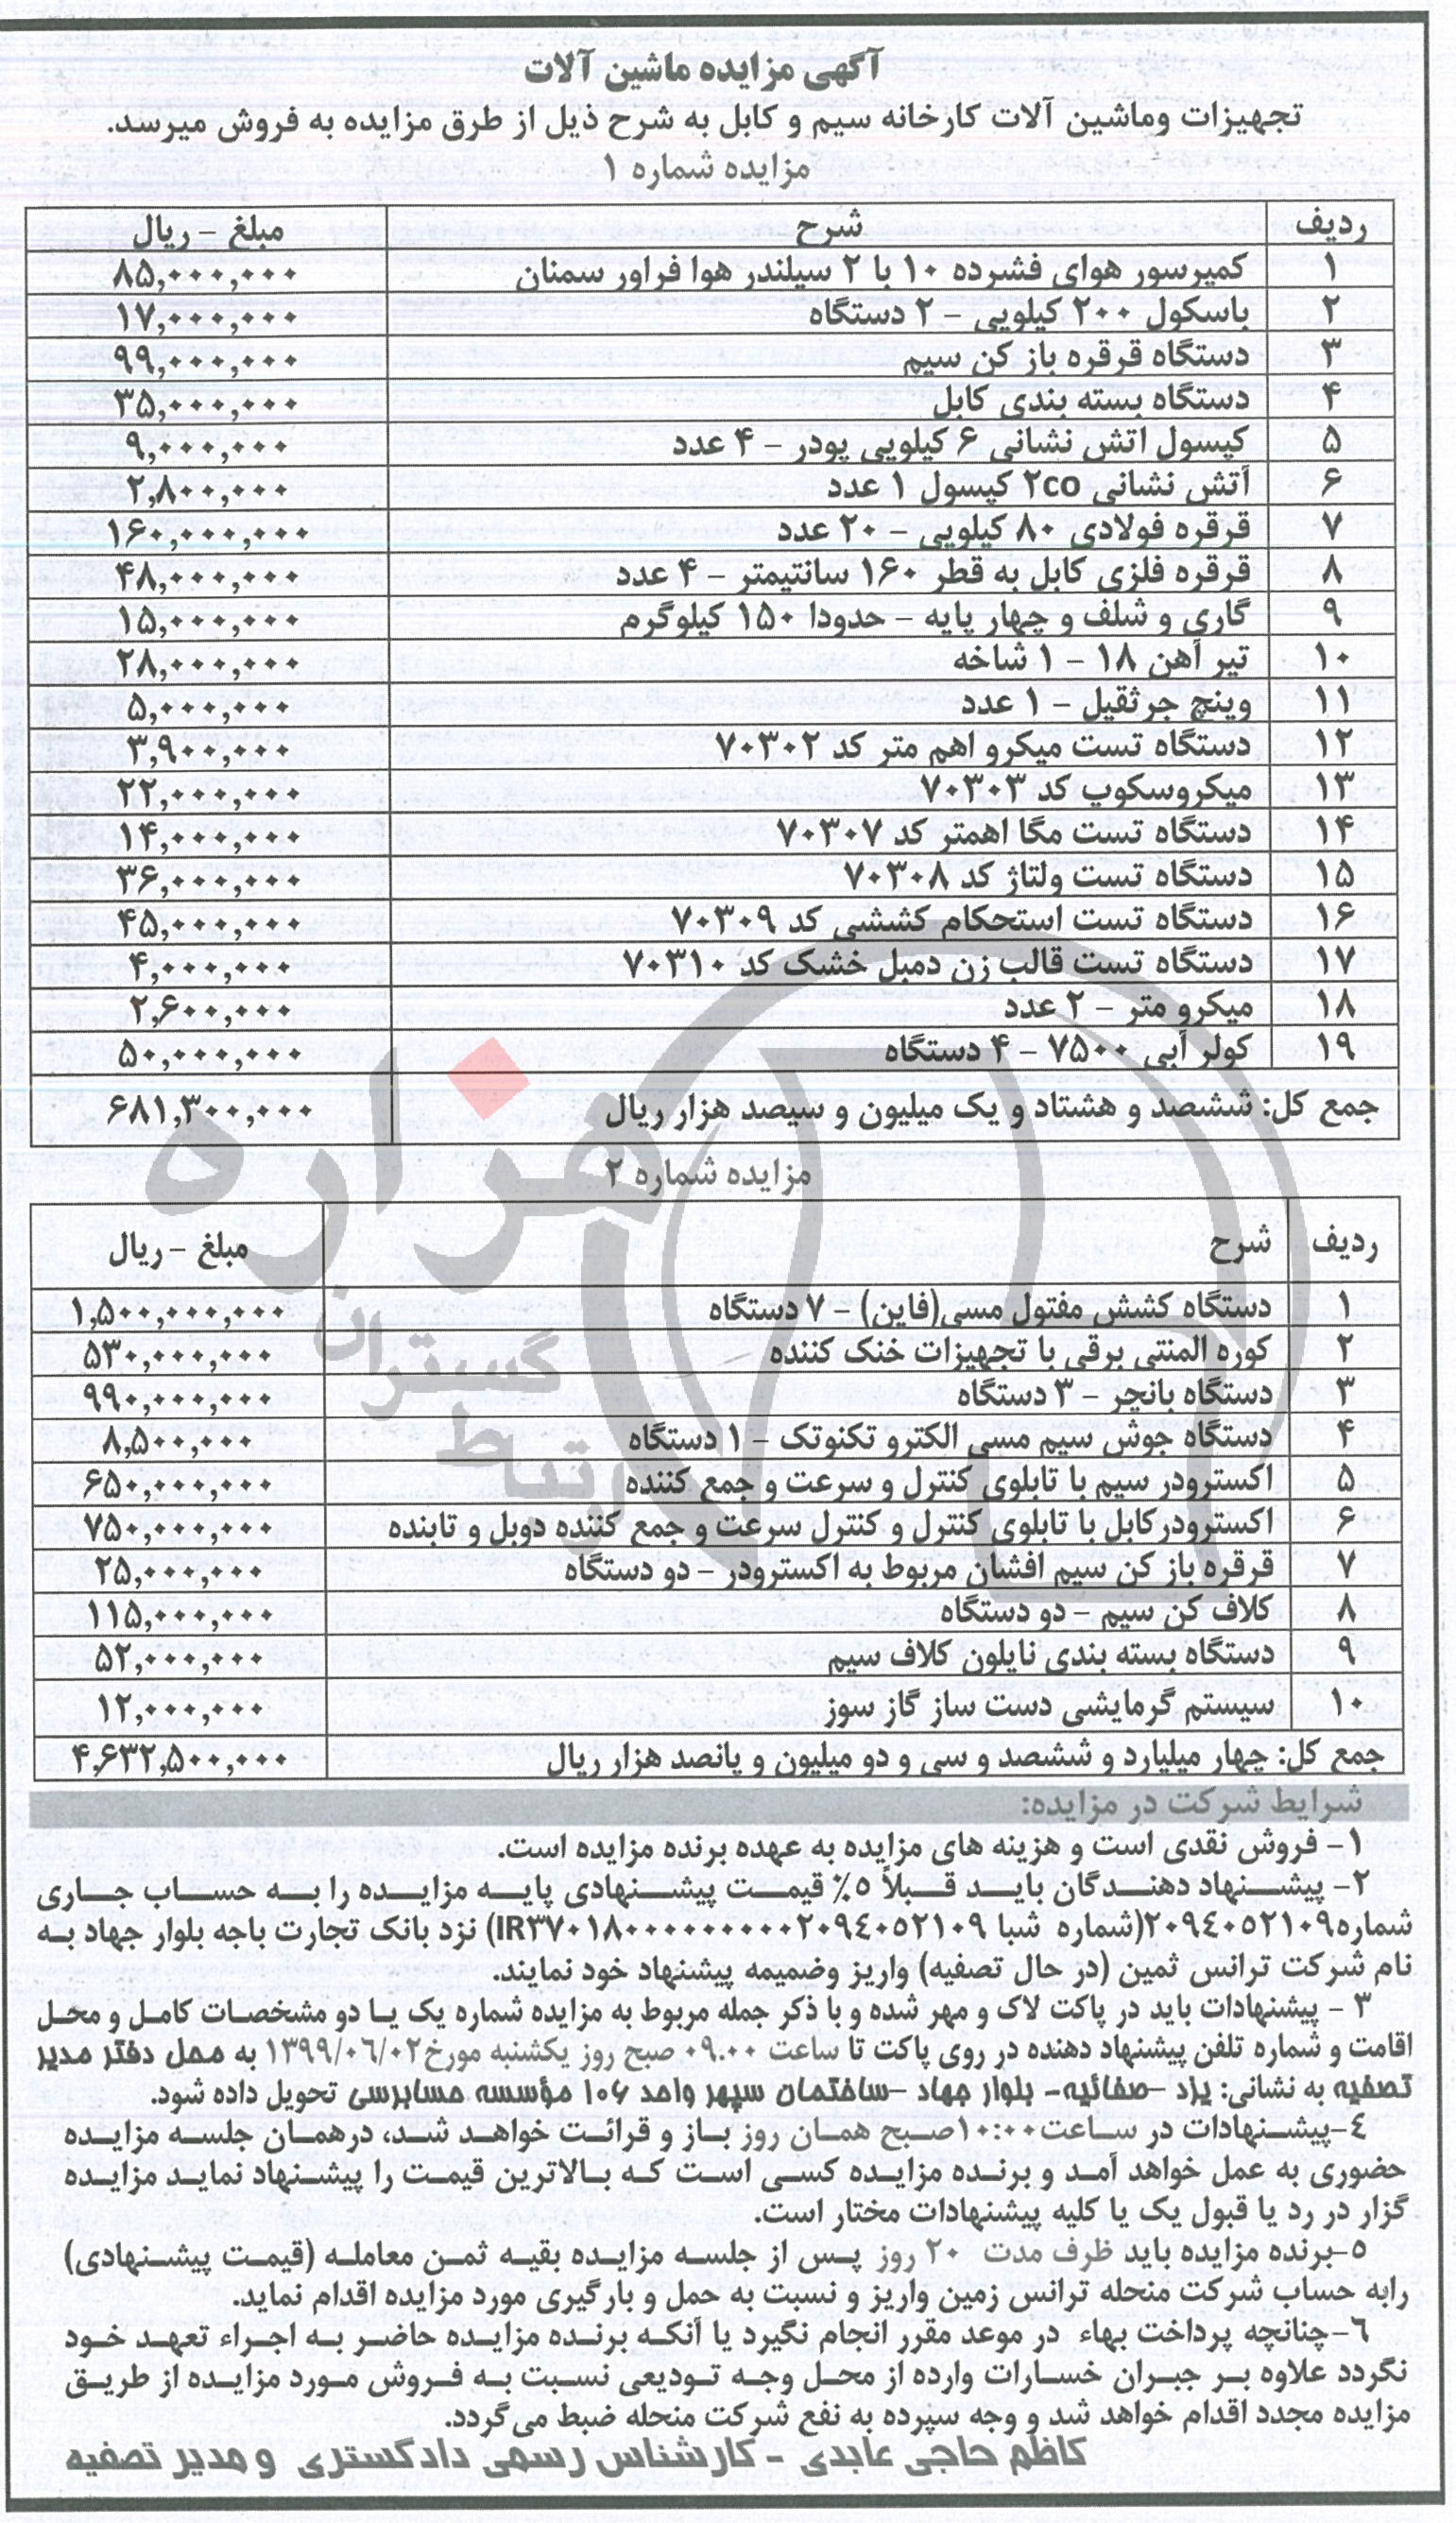 آگهی مزایده ماشین آلات
تجهیزات وماشین آلات کارخانه سیم و کابل به شرح ذیل از طرق مزایده به فروش میرسد.
مزایده شماره ۱
ردیف شرح مبلغ – ریال
۱ کمپرسور هوای فشرده ۱۰ با ۲ سیلندر هوا فراور سمنان ۸۵,۰۰۰,۰۰۰
۲ باسکول ۲۰۰ کیلویی – ۲ دستگاه ۱۷,۰۰۰,۰۰۰
۳ دستگاه قرقره باز کن سیم ۹۹,۰۰۰,۰۰۰
۴ دستگاه بسته بندی کابل ۳۵,۰۰۰,۰۰۰
۵ کپسول آتش نشانی ۶ کیلویی پودر – ۴ عدد ۹,۰۰۰,۰۰۰
۶ آتش نشانی ۲co کپسول ۱ عدد ۲,۸۰۰,۰۰۰
۷ قرقره فولادی ۸۰ کیلویی – ۲۰ عدد ۱۶۰,۰۰۰,۰۰۰
۸ قرقره فلزی کابل به قطر ۱۶۰ سانتیمتر – ۴ عدد ۴۸,۰۰۰,۰۰۰
۹ گاری و شلف و چهار پایه – حدودا ۱۵۰ کیلوگرم ۱۵,۰۰۰,۰۰۰
۱۰ تیر آهن ۱۸ – ۱ شاخه ۲۸,۰۰۰,۰۰۰
۱۱ وینچ جرثقیل – ۱ عدد ۵,۰۰۰,۰۰۰
۱۲ دستگاه تست میکرو اهم متر کد ۷۰۳۰۲ ۳,۹۰۰,۰۰۰
۱۳ میکروسکوپ کد ۷۰۳۰۳ ۲۲,۰۰۰,۰۰۰
۱۴ دستگاه تست مگا اهمتر کد ۷۰۳۰۷ ۱۴,۰۰۰,۰۰۰
۱۵ دستگاه تست ولتاژ کد ۷۰۳۰۸ ۳۶,۰۰۰,۰۰۰
۱۶ دستگاه تست استحکام کششی کد ۷۰۳۰۹ ۴۵,۰۰۰,۰۰۰
۱۷ دستگاه تست قالب زن دمبل خشک کد ۷۰۳۱۰ ۴,۰۰۰,۰۰۰
۱۸ میکرو متر – ۲ عدد ۲,۶۰۰,۰۰۰
۱۹ کولر آبی ۷۵۰۰ – ۴ دستگاه ۵۰,۰۰۰,۰۰۰
جمع کل: ششصد و هشتاد و یک میلیون و سیصد هزار ریال ۶۸۱,۳۰۰,۰۰۰
مزایده شماره ۲
ردیف شرح مبلغ – ریال
۱ دستگاه کشش مفتول مسی(فاین) – ۷ دستگاه ۱,۵۰۰,۰۰۰,۰۰۰
۲ کوره المنتی برقی با تجهیزات خنک کننده ۵۳۰,۰۰۰,۰۰۰
۳ دستگاه بانچر – ۳ دستگاه ۹۹۰,۰۰۰,۰۰۰
۴ دستگاه جوش سیم مسی الکترو تکنوتک – ۱ دستگاه ۸,۵۰۰,۰۰۰
۵ اکسترودر سیم با تابلوی کنترل و سرعت و جمع کننده ۶۵۰,۰۰۰,۰۰۰
۶ اکسترودرکابل با تابلوی کنترل و کنترل سرعت و جمع کننده دوبل و تابنده ۷۵۰,۰۰۰,۰۰۰
۷ قرقره باز کن سیم افشان مربوط به اکسترودر – دو دستگاه ۲۵,۰۰۰,۰۰۰
۸ کلاف کن سیم – دو دستگاه ۱۱۵,۰۰۰,۰۰۰
۹ دستگاه بسته بندی نایلون کلاف سیم ۵۲,۰۰۰,۰۰۰
۱۰ سیستم گرمایشی دست ساز گاز سوز ۱۲,۰۰۰,۰۰۰
جمع کل: چهار میلیارد و ششصد و سی و دو میلیون و پانصد هزار ریال ۴,۶۳۲,۵۰۰,۰۰۰
شرایط شرکت در مزایده:
۱– فروش نقدی است و هزینه های مزایده به عهده برنده مزایده است.
۲– پیشنهاد دهندگان باید قبلاً ۵٪ قیمت پیشنهادی پایه مزایده را به حساب جاری
شماره۲۰۹٤۰۵۲۱۰۹(شماره شبا IR۳۷۰۱۸۰۰۰۰۰۰۰۰۰۰۲۰۹٤۰۵۲۱۰۹) نزد بانک تجارت باجه بلوار جهاد به
نام شرکت ترانس ثمین (در حال تصفیه) واریز وضمیمه پیشنهاد خود نمایند.
۳ – پیشنهادات باید در پاکت لاک و مهر شده و با ذکر جمله مربوط به مزایده شماره یک یا دو مشخصات کامل و محل
اقامت و شماره تلفن پیشنهاد دهنده در روی پاکت تا ساعت ۰۹.۰۰ صبح روز یکشنبه مورخ۱۳۹۹/۰۶/۰۲ به محل دفتر مدیر
تصفیه به نشانی: یزد –صفائیه– بلوار جهاد –ساختمان سپهر واحد ۱۰۶ مؤسسه حسابرسی تحویل داده شود.
٤–پیشنهادات در ساعت۱۰:۰۰صبح همان روز باز و قرائت خواهد شد، درهمان جلسه مزایده
حضوری به عمل خواهد آمد و برنده مزایده کسی است که بالاترین قیمت را پیشنهاد نماید مزایده
گزار در رد یا قبول یک یا کلیه پیشنهادات مختار است.
۵–برنده مزایده باید ظرف مدت ۲۰ روز پس از جلسه مزایده بقیه ثمن معامله (قیمت پیشنهادی)
رابه حساب شرکت منحله ترانس زمین واریز و نسبت به حمل و بارگیری مورد مزایده اقدام نماید.
٦–چنانچه پرداخت بهاء در موعد مقرر انجام نگیرد یا آنکه برنده مزایده حاضر به اجراء تعهد خود
نگردد علاوه بر جبران خسارات وارده از محل وجه تودیعی نسبت به فروش مورد مزایده از طریق
مزایده مجدد اقدام خواهد شد و وجه سپرده به نفع شرکت منحله ضبط می گردد.
کاظم حاجی عابدی – کارشناس رسمی دادگستری و مدیر تصفیه
هزاره
گستران
ارتباط